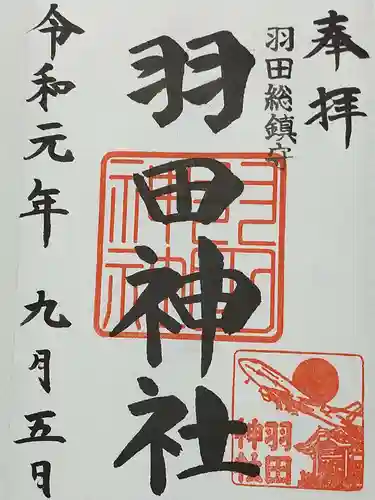 奉拝
羽田総鎮守
羽田神社
羽田神社
羽田
神社
令和元年 九月五日